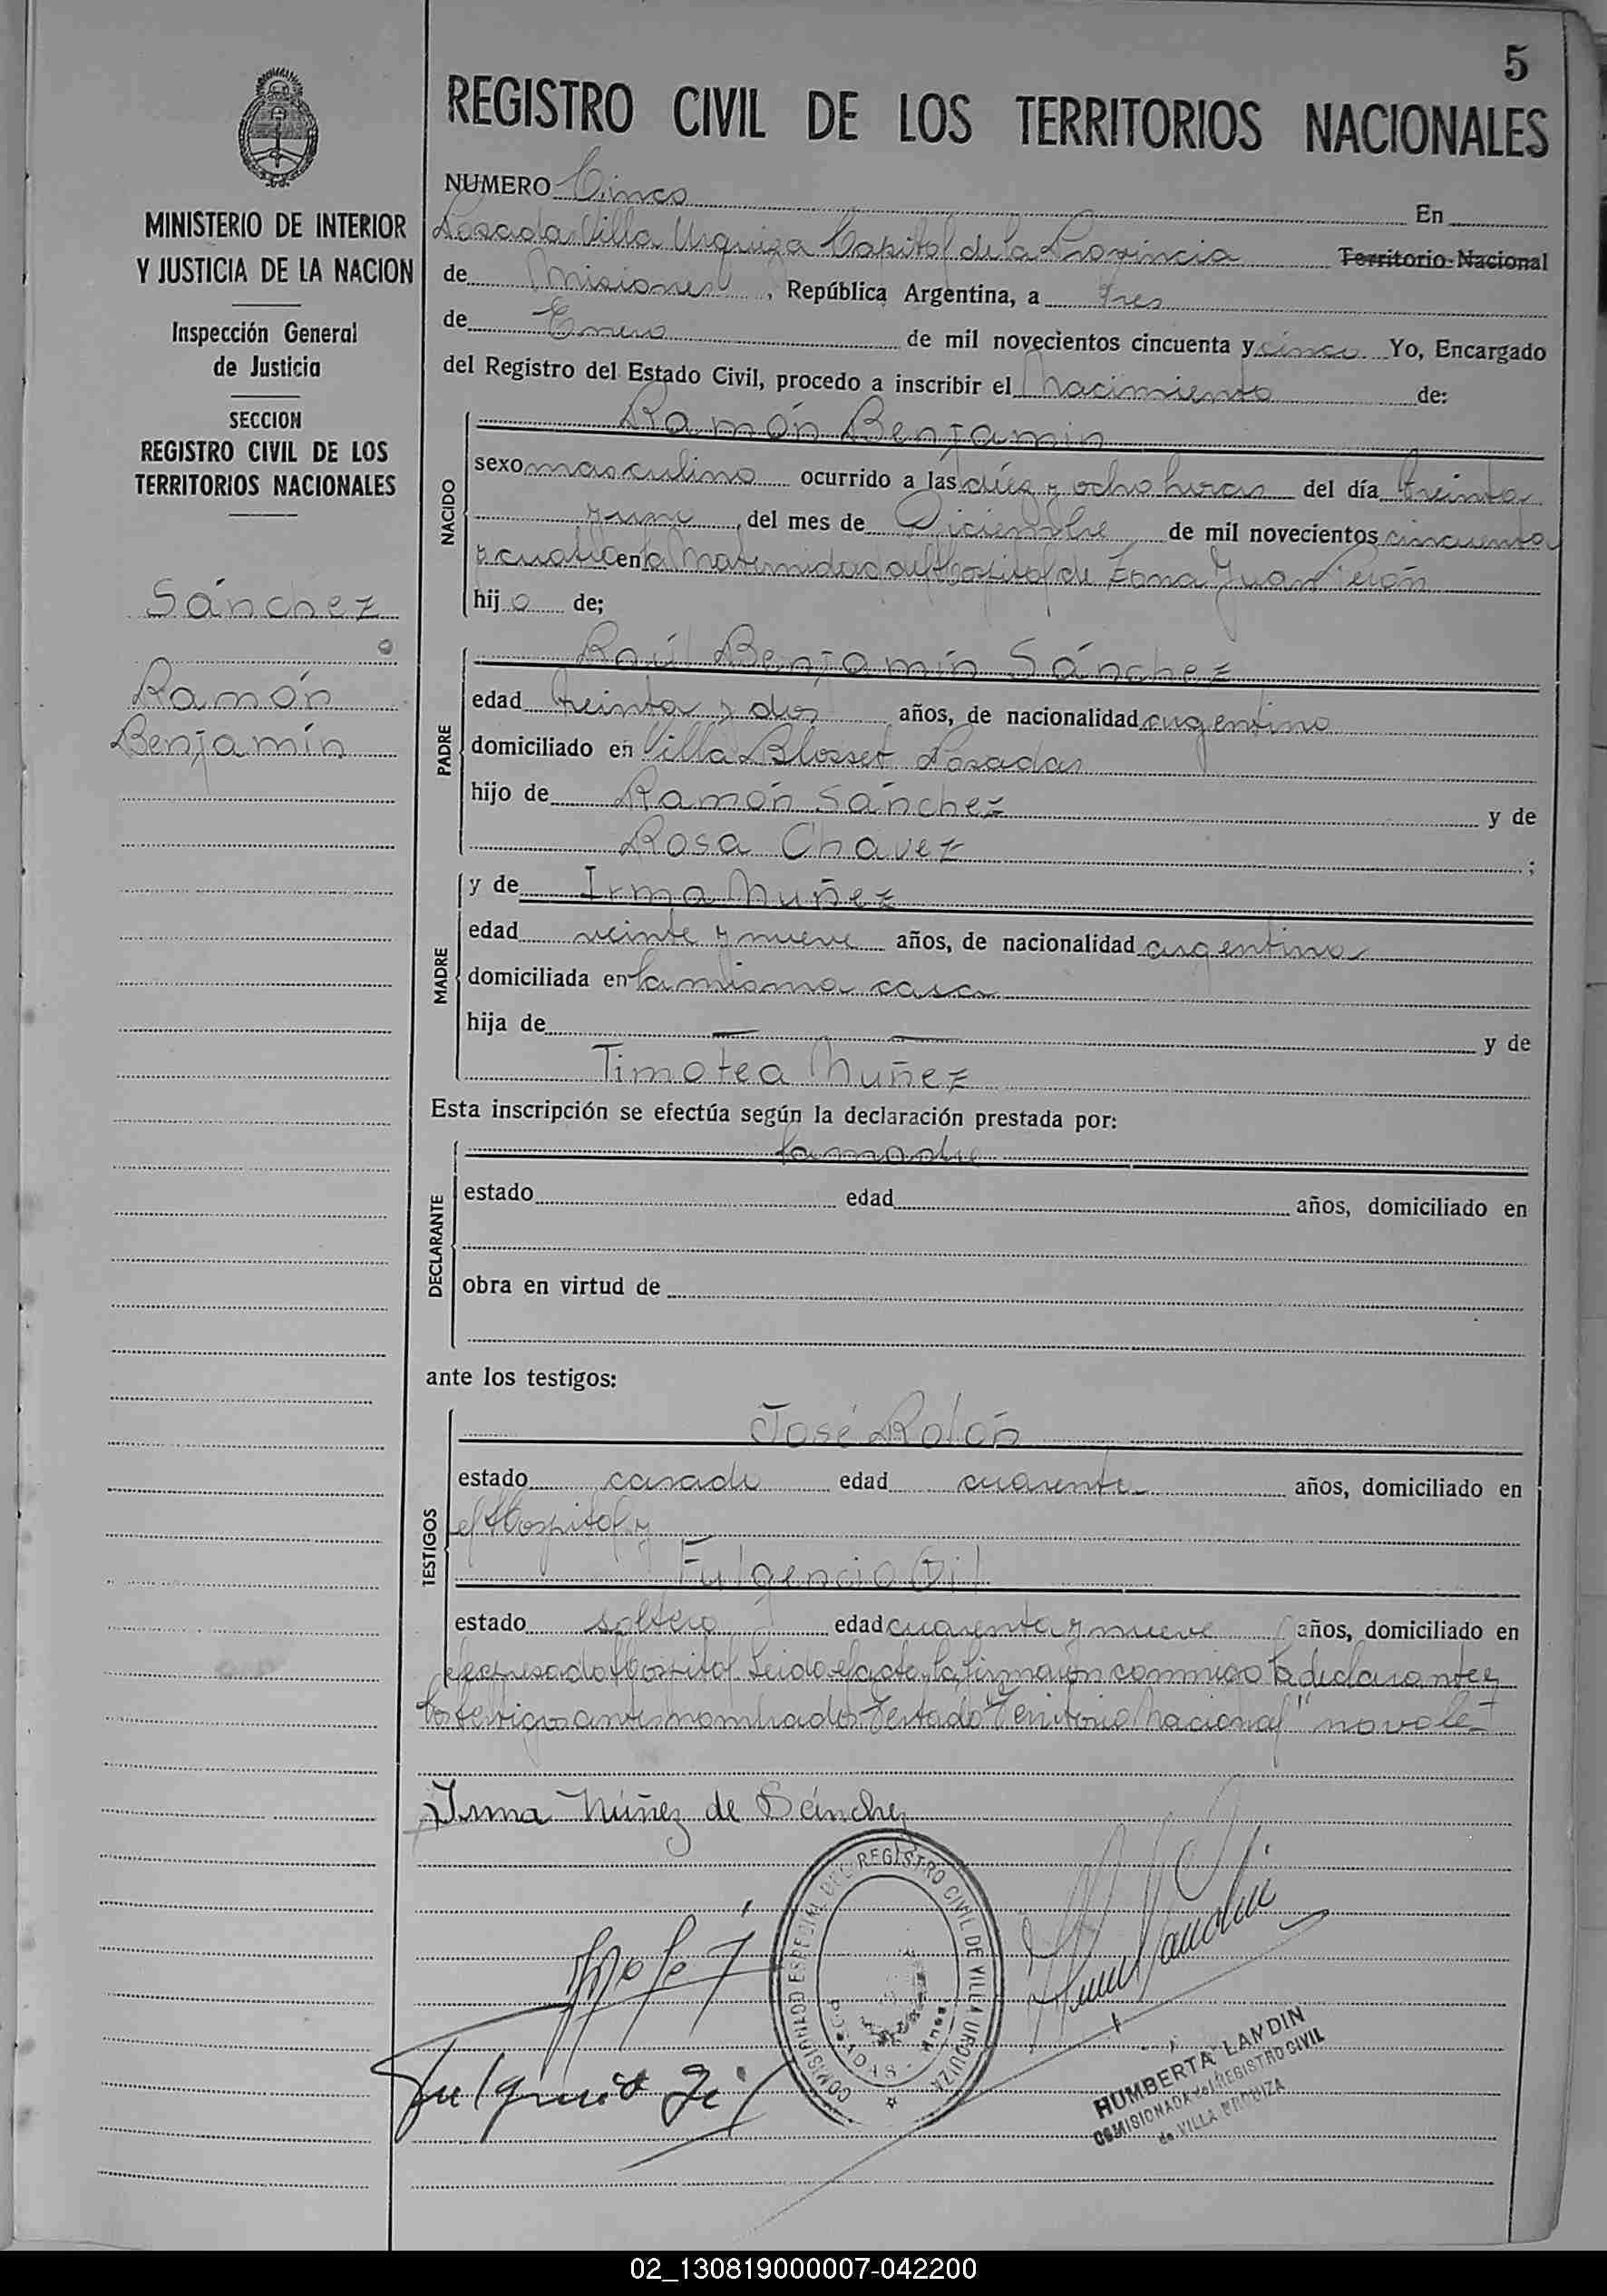 5
REGISTRO CIVIL DE LOS TERRITORIOS NACIONALES
MINISTERIO DE INTERIOR
Y JUSTICIA DE LA NACION
Inspección General
de Justicia
SECCION
REGISTRO CIVIL DE LOS
TERRITORIOS NACIONALES
Sánchez
Ramón
Benjamín
NUMERO Cinco En
Posadas Villa Urquiza Capital de la Provincia Territorio Nacional
de Misiones, República Argentina, a Tres
de Enero de mil novecientos cincuenta y cinco Yo, Encargado
del Registro del Estado Civil, procedo a inscribir el Nacimiento de:
NACIDO
Ramón Benjamín
sexo masculino ocurrido a las diez y ocho horas del día treinta
y uno, del mes de Diciembre de mil novecientos cincuenta
y cuatro en la Maternidad del Hospital de Zona Juan Perón
hijo de;
PADRE
Raúl Benjamín Sánchez
edad treinta y dos años, de nacionalidad argentino
domiciliado en Villa Blosset Posadas
hijo de Ramón Sánchez y de
Rosa Chavez ;
MADRE
y de Irma Nuñez
edad veinte y nueve años, de nacionalidad argentina
domiciliada en la misma casa
hija de — — y de
Timotea Nuñez
Esta inscripción se efectúa según la declaración prestada por:
DECLARANTE
la madre
estado edad años, domiciliado en
obra en virtud de
ante los testigos:
TESTIGOS
José Rolón
estado casado edad cuarenta años, domiciliado en
el Hospital y
Fulgencio Gil
estado soltero edad cuarenta y nueve años, domiciliado en
el expresado Hospital. Leida el acta, la firmaron conmigo la declarante y
los testigos antes nombrados. Testado "Territorio Nacional" no vale
Irma Núñez de Sánchez
Fulgencio Gil
COMISIONADO ESPECIAL DEL REGISTRO CIVIL DE VILLA URQUIZA
HUMBERTA LANDIN
COMISIONADA del REGISTRO CIVIL
de VILLA URQUIZA
02_130819000007-042200